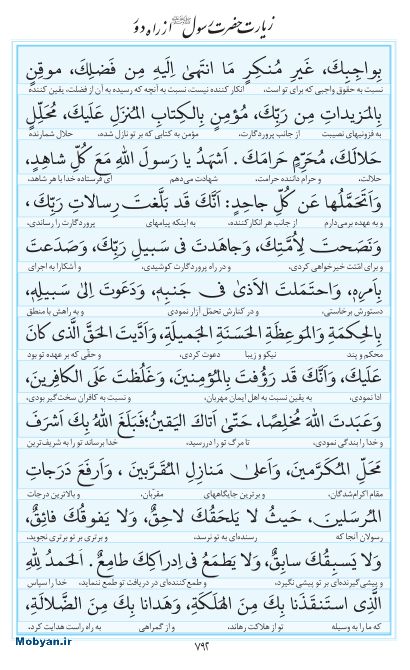 زیارت حضرت رسول ﷺ از راه دور
بِواجِبِكَ، غَیرِ مُنكِرٍ مَا انتَهىٰ اِلَیهِ مِن فَضلِكَ، موقِنٍ
نسبت به حقوق واجبی که برای تو است، انکار کننده نیست، نسبت به آنچه که رسیده به آن از فضلت، یقین کننده
بِالمَزیداتِ مِن رَبِّكَ، مُؤمِنٍ بِالكِتابِ المُنزَلِ عَلَیكَ، مُحَلِّلٍ
به فزونیهای نصیبت از جانب پروردگارت، مؤمن به کتابی که بر تو نازل شده، حلال شمارنده
حَلالَكَ، مُحَرِّمٍ حَرامَكَ . اَشهَدُ یا رَسولَ اللهِ مَعَ كُلِّ شاهِدٍ،
حلالت، و حرام داننده حرامت، شهادت می‌دهم ای فرستاده خدا با هر شاهد،
وَاَتَحَمَّلُها عَن كُلِّ جاحِدٍ: اَنَّكَ قَد بَلَّغتَ رِسالاتِ رَبِّكَ ،
و به عهده برمی‌دارم از جانب هر انکار کننده، به اینکه پیامهای پروردگارت را رساندی،
وَنَصَحتَ لِاُمَّتِكَ، وَجاهَدتَ فى سَبیلِ رَبِّكَ، وَصَدَعتَ
و برای امّتت خیرخواهی کردی، و در راه پروردگارت کوشیدی، و آشکارا به اجرای
بِاَمرِهِ، وَاحتَمَلتَ الاَذىٰ فى جَنبِهِ، وَدَعَوتَ اِلىٰ سَبیلِهِ،
دستورش برخاستی، و در کنارش تحمّل آزار نمودی و به راهش با منطق
بِالحِكمَةِ وَالمَوعِظَةِ الحَسَنَةِ الجَمیلَةِ، وَاَدَّیتَ الحَقَّ الَّذى كانَ
محکم و پند نیکو و زیبا دعوت کردی، و حقّی که بر عهده تو بود
عَلَیكَ، وَاَنَّكَ قَد رَؤُفتَ بِالمُؤمِنینَ، وَغَلُظتَ عَلَى الكافِرینَ،
ادا نمودی، به یقین نسبت به اهل ایمان مهربان، و نسبت به کافران سخت‌گیر بودی،
وَعَبَدتَ اللهَ مُخلِصًا، حَتّىٰ اَتاكَ الیَقینُ؛فَبَلَغَ اللهُ بِكَ اَشرَفَ
و خدا را بندگی نمودی، تا مرگ تو را دررسید، خدا برساند تو را به شریف‌ترین
مَحَلِّ المُكَرَّمینَ، وَاَعلىٰ مَنازِلِ المُقَرَّبینَ ، وَاَرفَعَ دَرَجاتِ
مقام اکرام‌شدگان، و برترین جایگاههای مقرّبان، و بالاترین درجات
المُرسَلینَ، حَیثُ لا یَلحَقُكَ لاحِقٌ، وَلا یَفوقُكَ فائِقٌ،
رسولان آنجا که رسنده‌ای به تو نرسد، و برتری بر تو برتری نجوید،
وَلا یَسبِقُكَ سابِقٌ، وَلا یَطمَعُ فى اِدراكِكَ طامِعٌ . اَلحَمدُ لِلّٰهِ
و پیشی گیرنده‌ای بر تو پیشی نگیرد، و طمع کننده‌ای در دریافت تو طمع ننماید، خدا را سپاس
الَّذِى استَنقَذَنا بِكَ مِنَ الهَلَكَةِ، وَهَدانا بِكَ مِنَ الضَّلالَةِ،
که ما را به وسیله تو از هلاکت رهاند، و از گمراهی به راه راست هدایت کرد.
۷۹۲
Mobyan.ir